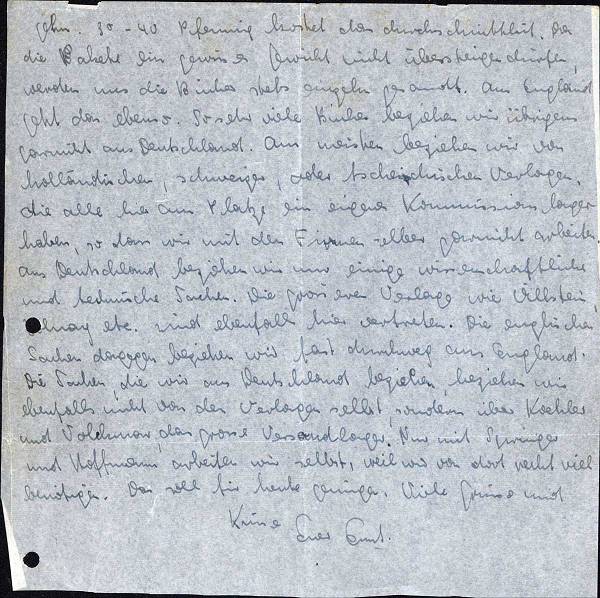 gehn. 30 - 40 Pfennig kostet das durchschnittlich. Da
die Pakete ein gewisses Gewicht nicht übersteigen dürfen,
werden uns die Bücher stets einzeln gesandt. Aus England
geht das ebenso. So sehr viele Bücher beziehen wir übrigens
garnicht aus Deutschland. Am meisten beziehen wir von
holländischen, schweizer, oder tschechischen Verlagen,
die alle hier am Platze ein eigenes Kommissionslager
haben, so dass wir mit den Firmen selber garnicht arbeiten.
Aus Deutschland beziehen wir nur einige wissenschaftliche
und technische Sachen. Die grösseren Verlage wie Ullstein,
etc. sind ebenfalls hier vertreten. Die englischen
Sachen dagegen beziehen wir fast durchweg aus England.
Die Sachen, die wir aus Deutschland beziehen, beziehen wir
ebenfalls nicht von den Verlagen selbst, sondern über Koehler
und Volckmar, das grosse Versandlager. Nur mit Springer
und Hoffmann arbeiten wir selbst, weil wir von dort recht viel
benötigen. Das soll für heute genügen. Viele Grüsse und
Küsse
Euer Ernst.